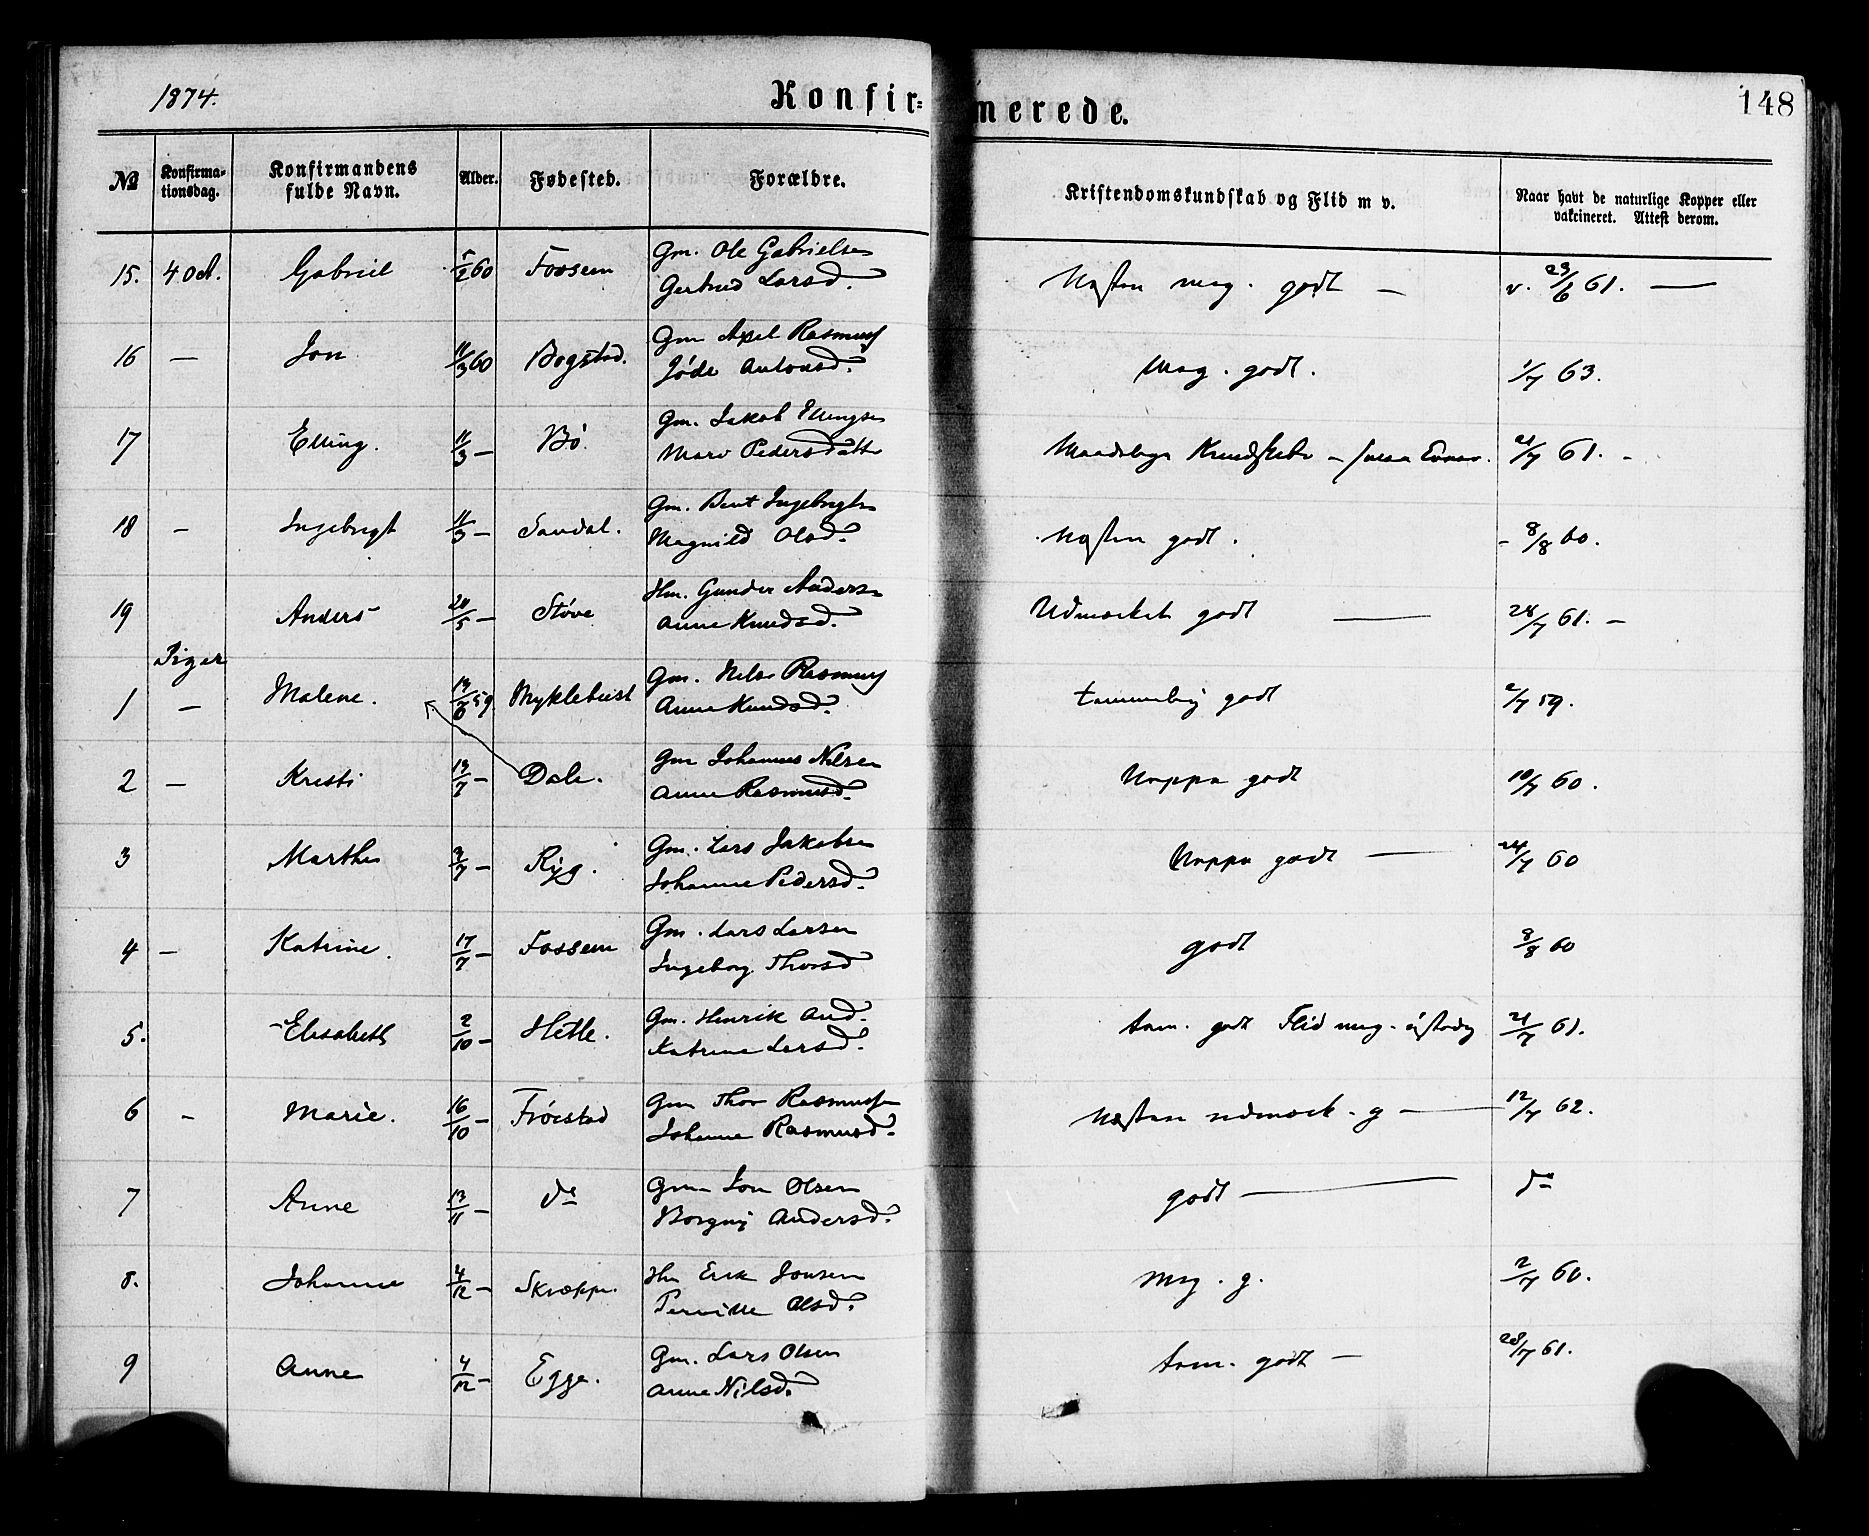 1874.
Konfir=
merede.
148
№
Konfirma-
tionsdag.
Konfirmandens
fulde Navn.
Alder.
Fødested.
Forældre.
Kristendomskundskab og Flid m v.
Naar havt de naturlige Kopper eller
vakcineret. Attest derom.
15. 4 Oct. Gabriel 5/2 60 Fossem Gm. Ole Gabrielsen
Gertrud Larsd. Næsten meg. godt — v. 23/6 61. —
16 — Jon 11/3 60 Bogstad. Gm Axel Rasmuss
Antonsd. Meg. godt. 1/7 63.
17 Elling. 11/3 — Bø. Gm. Jakob Ellingsen
Pedersdatter Maadelige Kundskaber — 21/7 61. -
18 — Ingebrigt 11/3 — Sandal. Gm. Bent Ingebrigtsen
Magnild Olsd. Næsten godt. - 8/8 60.
19 Anders 20/5 — Støve Hm. Gunder Anderss
Anne Knudsd. Udmærket godt — 24/7 61. —
Piger
1 — Malene. 59 Myklebust Gm. Nils Rasmuss
Anne Knudsd. temmelig godt 2/7 59.
2 — Kristi 13/7 — Dale. Gm Johannes Nilsen
Anne Rasmusd. Noppe godt 10/7 60.
3 Marthe 3/7 — Ryg. Gm. Lars Jakobsen
Johanne Pedersd. Noppe godt — 24/7 60
4 — Katrine. 17/7 — Fossem Gm. Lars Larsen
Ingeborg Thorsd godt 8/8 60
5. Elisabeth 2/10 — Hetle. Gm. Henrik And.
Katrine Larsd. tem. godt Flid meg. 21/7 61.
6 — Marie. 16/10 — Frøistad Gm Thor Rasmussen
Johanne Rasmusd. Næsten udmærk. g — 12/7 62.
7 Anne 13/11 — do Gm Jon Olsen
Borgny Andersd. godt — do
8. Johanne 4/12 — Skreppe. Hm Erik Jonsen
Pernille Olsd. Meg. g. 2/7 60.
9 Anne 4/12 — Egge. Gm. Lars Olsen
Anne Nilsd. tem. godt — 28/7 61.